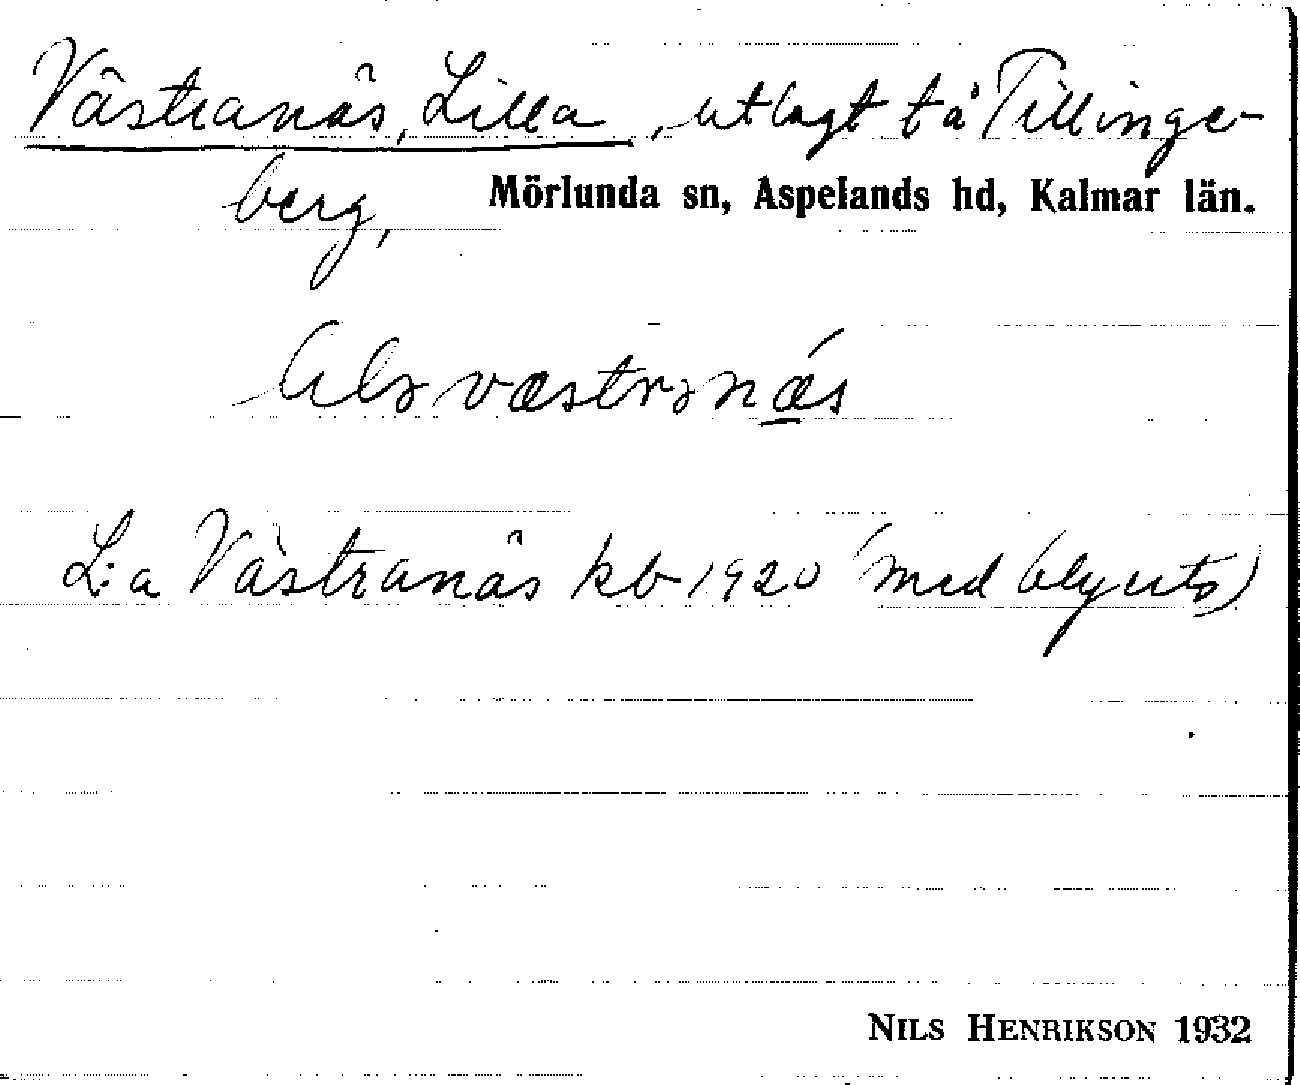 Västranäs, Lilla, utlagt tå Tillinge-
berg, Mörlunda sn, Aspelands hd, Kalmar län.
L:a Västranäs kb 1920 (med blyerts)
NILS HENRIKSON 1932